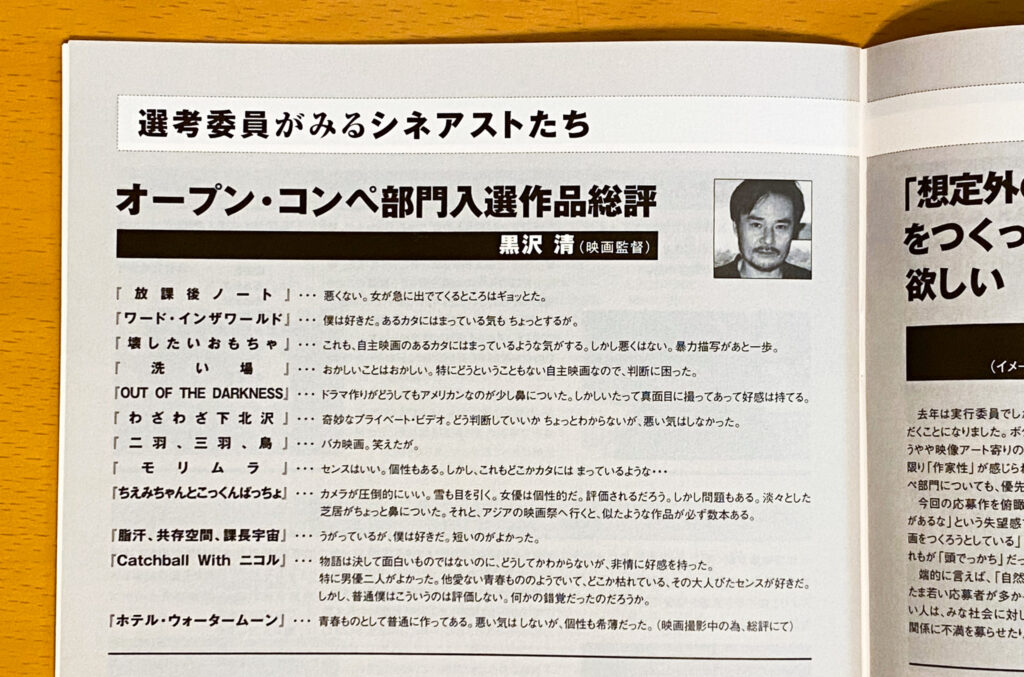 選考委員がみるシネアストたち
オープン・コンペ部門入選作品総評
黒沢 清（映画監督）
『放課後ノート』・・・ 悪くない。女が急に出てくるところはギョッとた。
『ワード・インザワールド』・・・ 僕は好きだ。あるカタにはまっている気も ちょっとするが。
『壊したいおもちゃ』・・・ これも、自主映画のあるカタにはまっているような気がする。しかし悪くはない。暴力描写があと一歩。
『洗い場』・・・ おかしいことはおかしい。特にどうということもない自主映画なので、判断に困った。
『OUT OF THE DARKNESS』・・・ ドラマ作りがどうしてもアメリカンなのが少し鼻についた。しかしいたって真面目に撮ってあって好感は持てる。
『わざわざ下北沢』・・・ 奇妙なプライベート・ビデオ。どう判断していいか ちょっとわからないが、悪い気はしなかった。
『二羽、三羽、鳥』・・・ バカ映画。笑えたが。
『モリムラ』・・・ センスはいい。個性もある。しかし、これもどこかカタには まっているような・・・
『ちえみちゃんとこっくんぱっちょ』・・・ カメラが圧倒的にいい。雪も目を引く。女優は個性的だ。評価されるだろう。しかし問題もある。淡々とした
芝居がちょっと鼻についた。それと、アジアの映画祭へ行くと、似たような作品が必ず数本ある。
『脂汗、共存空間、課長宇宙』・・・ うがっているが、僕は好きだ。短いのがよかった。
『Catchball With ニコル』・・・ 物語は決して面白いものではないのに、どうしてかわからないが、非情に好感を持った。
特に男優二人がよかった。他愛ない青春もののようでいて、どこか枯れている、その大人びたセンスが好きだ。
しかし、普通僕はこういうのは評価しない。何かの錯覚だったのだろうか。
『ホテル・ウォータームーン』・・・ 青春ものとして普通に作ってある。悪い気は しないが、個性も希薄だった。（映画撮影中の為、総評にて）
「想定外の
をつくっ
欲しい
（イメー
去年は実行委員でした
だくことになりました。ボク
うやや映像アート寄りの
限り「作家性」が感じられ
ペ部門についても、優先
今回の応募作を俯瞰
があるな」という失望感
画をつくろうとしている」
れもが「頭でっかち」だっ
端的に言えば、「自然
たま若い応募者が多か
い人は、みな社会に対し
関係に不満を募らせたり